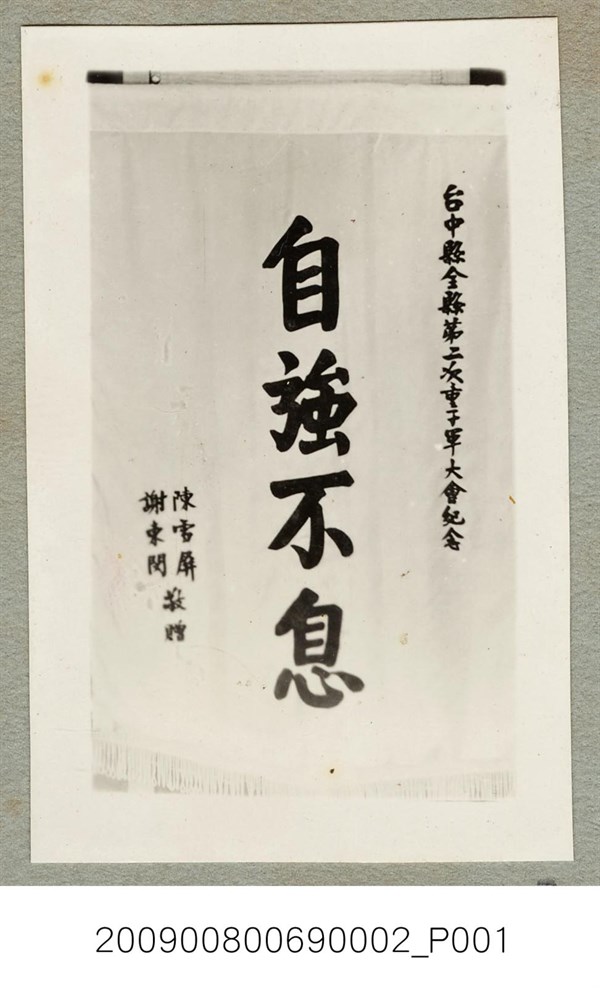 台中縣全縣第二次童子軍大會紀念
自強不息
陳雪屏
謝東閔
敬贈
200900800690002_P001